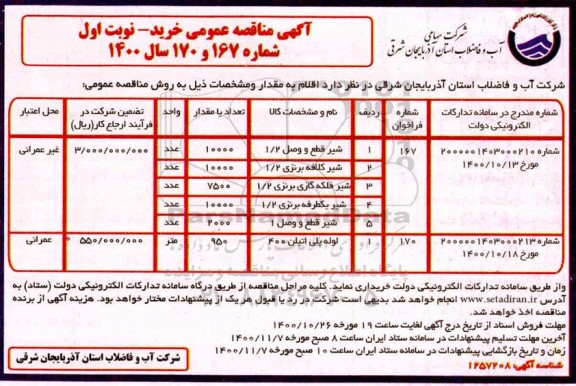 شرکت سهامی
آب و فاضلاب استان آذربایجان شرقی
آگهی مناقصه عمومی خرید- نوبت اول
شماره ۱۶۷ و ۱۷۰ سال ۱۴۰۰
شرکت آب و فاضلاب استان آذربایجان شرقی در نظر دارد اقلام به مقدار ومشخصات ذیل به روش مناقصه عمومی:
شماره مندرج در سامانه تدارکات الکترونیکی دولت | شماره فراخوان | ردیف | نام و مشخصات کالا | تعداد یا مقدار | واحد | تضمین شرکت در فرآیند ارجاع کار(ریال) | محل اعتبار
شماره ۲۰۰۰۰۰۱۴۰۳۰۰۰۲۱۰ مورخ ۱۴۰۰/۱۰/۱۳ | ۱۶۷ | ۱ | شیر قطع و وصل ۱/۲ | ۱۰۰۰۰ | عدد | ۳/۰۰۰/۰۰۰/۰۰۰ | غیر عمرانی
۲ | شیر کلافه برنزی ۱/۲ | ۱۰۰۰۰ | عدد
۳ | شیر فلکه گازی برنزی ۱/۲ | ۷۵۰۰ | عدد
۴ | شیر یکطرفه برنزی ۱/۲ | ۱۰۰۰۰ | عدد
۵ | شیر قطع و وصل ۱ | ۲۰۰۰ | عدد
شماره ۲۰۰۰۰۰۱۴۰۳۰۰۰۲۱۳ مورخ ۱۴۰۰/۱۰/۱۸ | ۱۷۰ | ۱ | لوله پلی اتیلن ۴۰۰ | ۹۵۰ | متر | ۵۵۰/۰۰۰/۰۰۰ | عمرانی
واز طریق سامانه تدارکات الکترونیکی دولت خریداری نماید. کلیه مراحل مناقصه از طریق درگاه سامانه تدارکات الکترونیکی دولت (ستاد) به
آدرس www.setadiran.ir انجام خواهد شد بدیهی است شرکت در رد یا قبول هر یک از پیشنهادات مختار خواهد بود. هزینه آگهی از برنده
مناقصه اخذ خواهد شد.
مهلت فروش اسناد از تاریخ درج آگهی لغایت ساعت ۱۹ مورخه ۱۴۰۰/۱۰/۲۶
آخرین مهلت تسلیم پیشنهادات در سامانه ستاد ایران ساعت ۸ صبح مورخه ۱۴۰۰/۱۱/۷
زمان و تاریخ بازگشایی پیشنهادات در سامانه ستاد ایران ساعت ۱۰ صبح مورخه ۱۴۰۰/۱۱/۷
شناسه آگهی: ۱۲۵۷۲۰۸
شرکت آب و فاضلاب استان آذربایجان شرقی